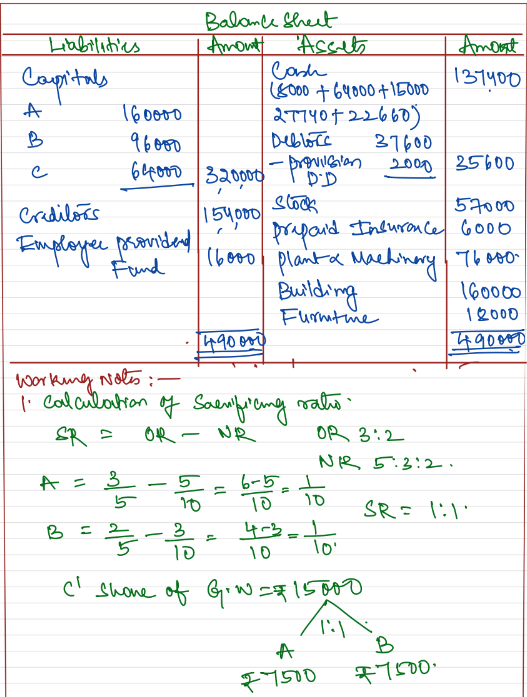 Balance Sheet
Liabilities Amount Assets Amount
Capitals Cash 137400
(8000 + 64000 + 15000
A 160000 27740 + 22660)
B 96000 Debtors 37600
C 64000 320000 - provision D.D 2000 35600
Creditors 154000 Stock 57000
prepaid Insurance 6000
Employee provident Fund 16000 plant & Machinery 76000
Building 160000
Furniture 18000
490000 490000
Working Notes :—
1. Calculation of Sacrificing ratio.
SR = OR - NR OR 3:2
NR 5:3:2.
A = 3/5 - 5/10 = 6-5/10 = 1/10
SR = 1:1.
B = 2/5 - 3/10 = 4-3/10 = 1/10.
C' share of G.W = ₹15000
1:1
A B
₹7500 ₹7500.